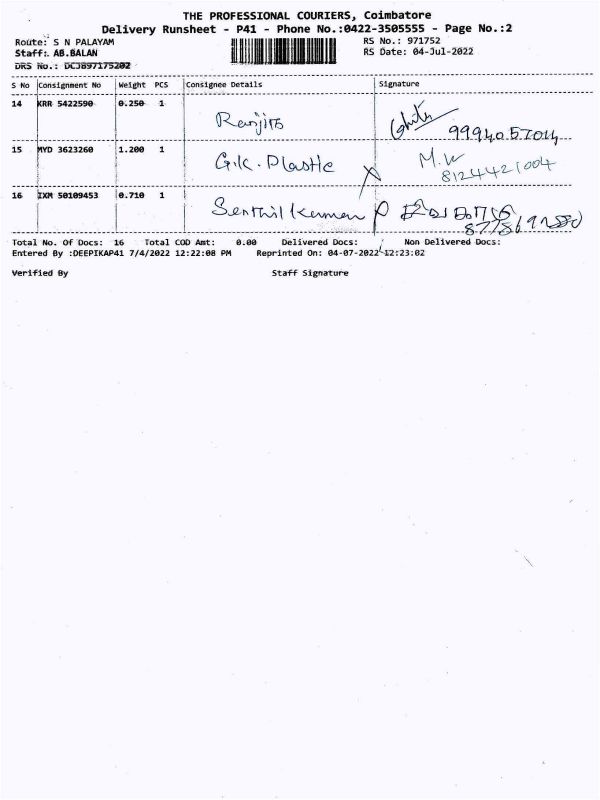 THE PROFESSIONAL COURIERS, Coimbatore
Delivery Runsheet - P41 - Phone No.:0422-3505555 - Page No.:2
Route: S N PALAYAM
RS No.: 971752
Staff: AB.BALAN
RS Date: 04-Jul-2022
DRS No.: DCJ897175202
S No Consignment No Weight PCS Consignee Details Signature
14 KRR 5422590 0.250 1 Ranjith
9994057014
15 MYD 3623260 1.200 1 G.K. Plastic M.W
8124421004
16 IXM 50109453 0.710 1 Senthil Kumar
Total No. Of Docs: 16 Total COD Amt: 0.00 Delivered Docs: Non Delivered Docs:
Entered By :DEEPIKAP41 7/4/2022 12:22:08 PM Reprinted On: 04-07-2022 12:23:02
Verified By Staff Signature